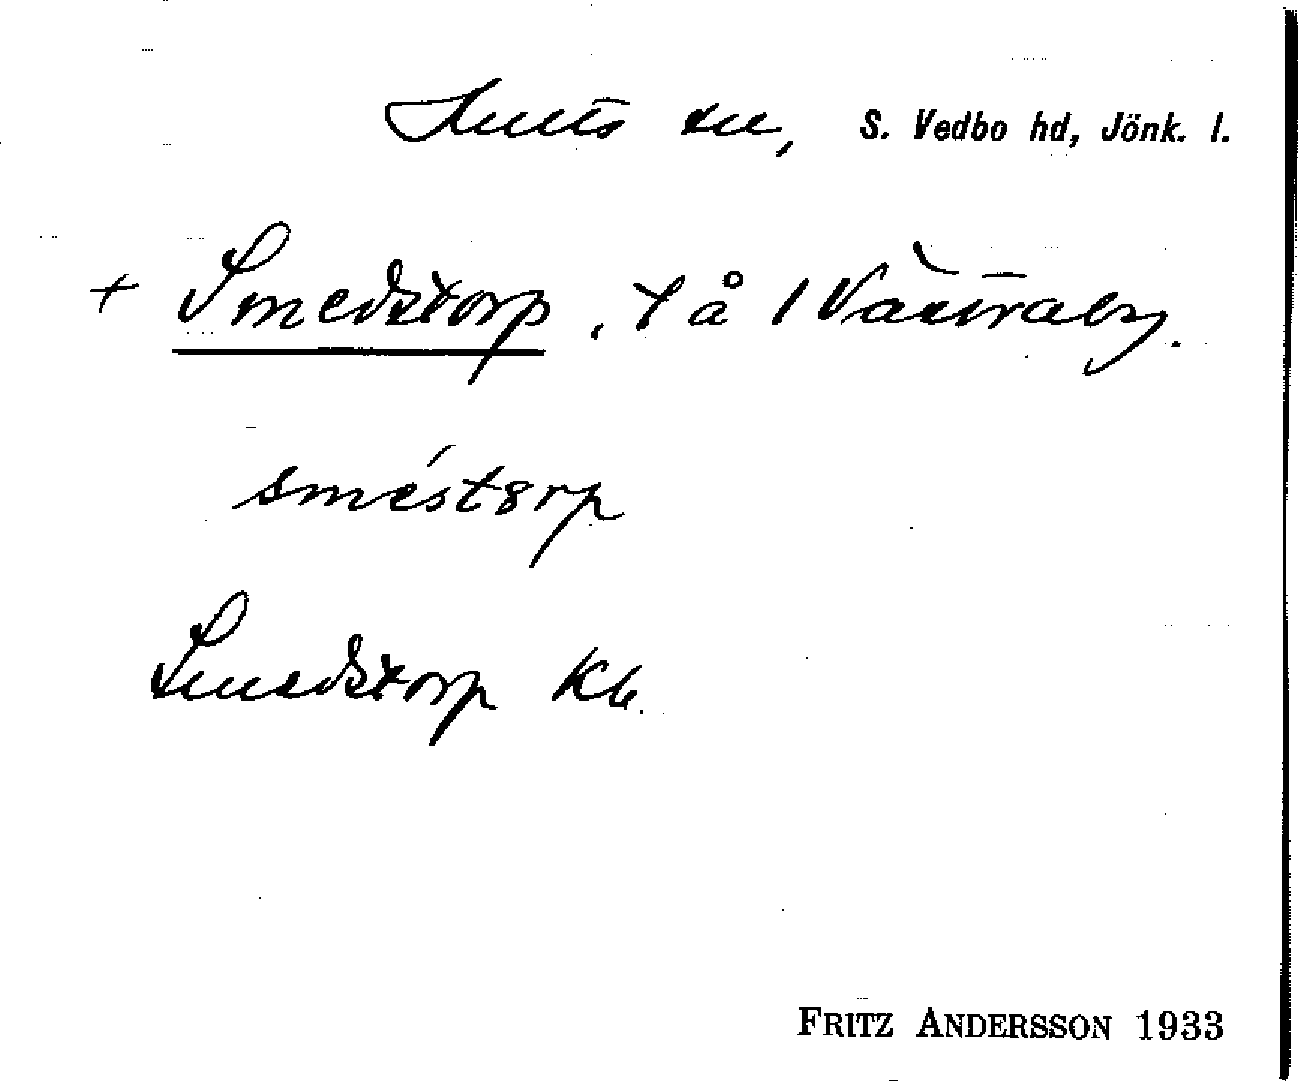 Hults sn, S. Vedbo hd, Jönk. l.
+ Smedstorp, t å Västraby.
smést8rp
Smedstorp Kb.
FRITZ ANDERSSON 1933